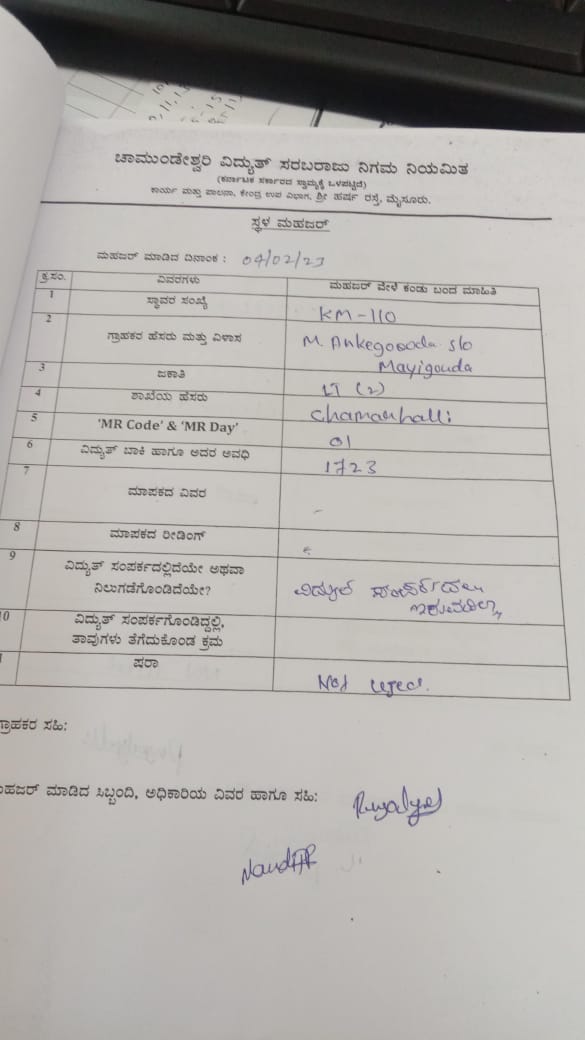 ಚಾಮುಂಡೇಶ್ವರಿ ವಿದ್ಯುತ್ ಸರಬರಾಜು ನಿಗಮ ನಿಯಮಿತ
(ಕರ್ನಾಟಕ ಸರ್ಕಾರದ ಸ್ವಾಮ್ಯಕ್ಕೆ ಒಳಪಟ್ಟಿದೆ)
ಕಾರ್ಯ ಮತ್ತು ಪಾಲನಾ, ಕೇಂದ್ರ ಉಪ ವಿಭಾಗ, ಶ್ರೀ ಹರ್ಷ ರಸ್ತೆ, ಮೈಸೂರು.
ಸ್ಥಳ ಮಹಜರ್
ಮಹಜರ್ ಮಾಡಿದ ದಿನಾಂಕ : 04/02/23
ಕ್ರ.ಸಂ. ವಿವರಗಳು ಮಹಜರ್ ವೇಳೆ ಕಂಡು ಬಂದ ಮಾಹಿತಿ
1 ಸ್ಥಾವರ ಸಂಖ್ಯೆ KM-110
2 ಗ್ರಾಹಕರ ಹೆಸರು ಮತ್ತು ವಿಳಾಸ M. Ankegooda s/o
Mayigouda
3 ಜಕಾತಿ LT (2)
4 ಶಾಖೆಯ ಹೆಸರು Chamanhalli
5 'MR Code' & 'MR Day' 01
6 ವಿದ್ಯುತ್ ಬಾಕಿ ಹಾಗೂ ಅದರ ಅವಧಿ 1723
7 ಮಾಪಕದ ವಿವರ -
8 ಮಾಪಕದ ರೀಡಿಂಗ್
9 ವಿದ್ಯುತ್ ಸಂಪರ್ಕದಲ್ಲಿದೆಯೇ ಅಥವಾ
ನಿಲುಗಡೆಗೊಂಡಿದೆಯೇ? ವಿದ್ಯುತ್ ಸಂಪರ್ಕದಲ್ಲಿ
ಇರುವುದಿಲ್ಲ
10 ವಿದ್ಯುತ್ ಸಂಪರ್ಕಗೊಂಡಿದ್ದಲ್ಲಿ,
ತಾವುಗಳು ತೆಗೆದುಕೊಂಡ ಕ್ರಮ
ಷರಾ Not
ಗ್ರಾಹಕರ ಸಹಿ:
ಮಹಜರ್ ಮಾಡಿದ ಸಿಬ್ಬಂದಿ, ಅಧಿಕಾರಿಯ ವಿವರ ಹಾಗೂ ಸಹಿ: